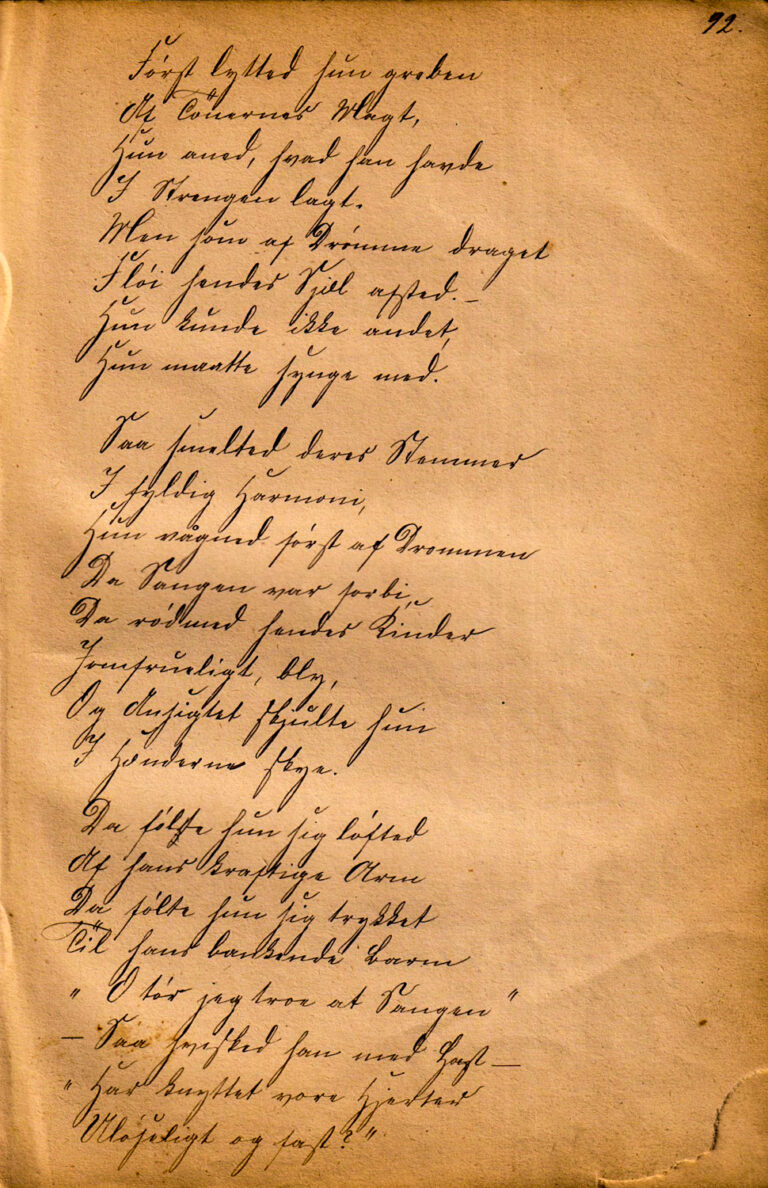 92.
Först lytted hun greben
Af Tönernes Magt,
Hun aned, hvad han havde
I Strengen lagt.
Men som af Drømme draget
Flöi hendes Sjæl afsted. –
Hun kunde ikke andet,
Hun maatte synge med.
Saa smelted deres Stemmer
I fyldig Harmoni,
Hun vågned först af Drømmen
Da Sangen var forbi,
Da rödmed hendes Kinder
Jomfrueligt, bly,
Og Ansigtet skjulte hun
I Hænderne skye.
Da fölte hun sig löfted
Af hans kraftige Arm
Da fölte hun sig trykket
Til hans bankende Barm
"O tör jeg troe at Sangen"
– Saa hvisked han med Hast –
"Har knyttet vore Hjerter
Ulöseligt og fast?"